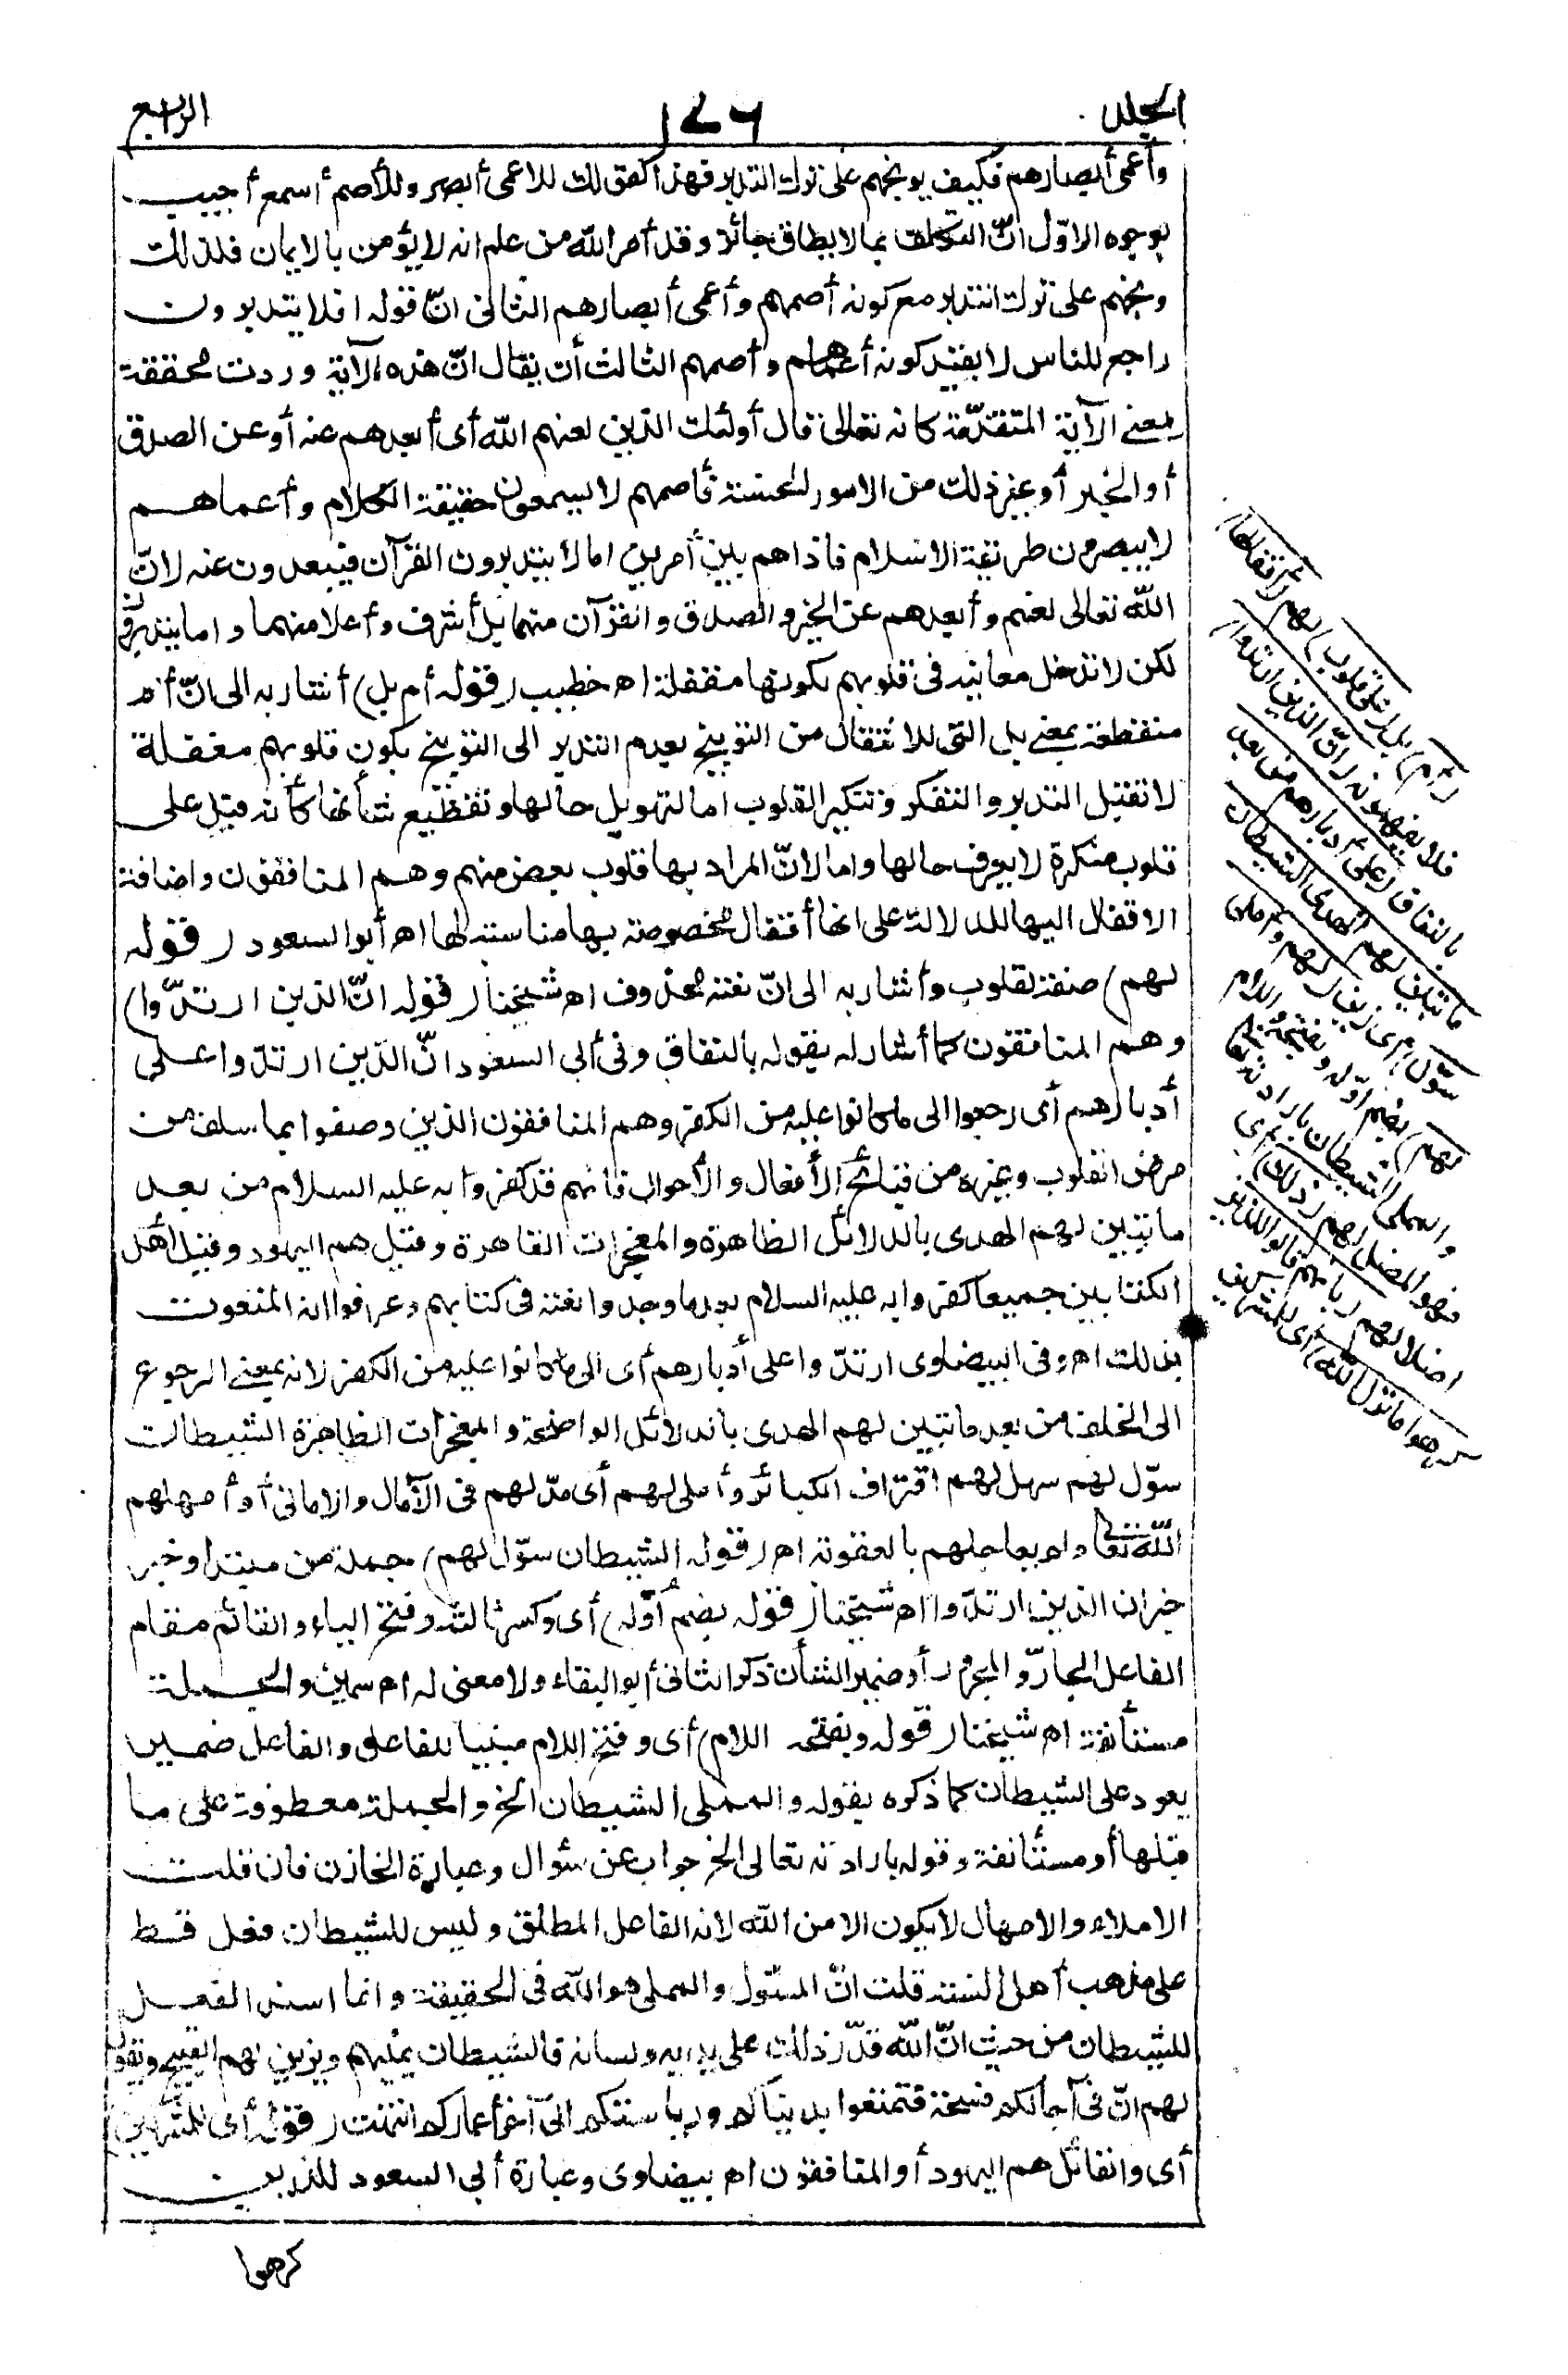 الجلد
١٤٦
الرابع
وأعمى أبصارهم فكيف يوبخهم على ترك التدبر فهذا كقولك للاعمى أبصر وللأصم أسمع أجيب
بوجوه الاوّل انّ التكليف بما لا يطاق جائز وقد أمر الله من علم انه لا يؤمن بالايمان فلذلك
وبخهم على ترك التدبر مع كونه أصمهم وأعمى أبصارهم الثانى انّ قوله افلا يتدبرون
راجع للناس لا بقيد كونه أعماهم وأصمهم الثالث أن يقال انّ هذه الآية وردت محققة
لمعنى الآية المتقدّمة كانه تعالى قال أولئك الذين لعنهم الله أى أبعدهم عنه أو عن الصدق
أو الخير أو غير ذلك من الامور الحسنة فأصمهم لا يسمعون حقيقة الكلام وأعماهم
لا يبصرون طريقة الاسلام فاذاهم بين أمرين اما لا يتدبرون القرآن فيبعدون عنه لانّ
الله تعالى لعنهم وأبعدهم عن الخير والصدق والقرآن منهما بل أشرف وأعلا منهما واما يتدبرون
لكن لا تدخل معانيه فى قلوبهم لكونها مقفلة اه خطيب (قوله أم بل) أشار به الى انّ أم
منقطعة بمعنى بل التى للانتقال من التوبيخ بعدم التدبر الى التوبيخ بكون قلوبهم مقفلة
لا تقبل التدبر والتفكر وتنكير القلوب اما لتهويل حالها وتفظيع شأنها كأنه قيل على
قلوب منكرة لا يعرف حالها واما لانّ المراد بها قلوب بعض منهم وهم المنافقون واضافة
الاقفال اليها للدلالة على انها أقفال مخصوصة بها مناسبة لها اه أبو السعود (قوله
لهم) صفة لقلوب وأشار به الى انّ نعته محذوف اه شيخنا (قوله انّ الذين ارتدّوا)
وهم المنافقون كما أشار له بقوله بالنفاق وفى أبى السعود انّ الذين ارتدّوا على
أدبارهم أى رجعوا الى ما كانوا عليه من الكفر وهم المنافقون الذين وصفوا بما سلف من
مرض القلوب وغيره من قبائح الأفعال والأحوال فانهم قد كفروا به عليه السلام من بعد
ما تبين لهم الهدى بالدلائل الظاهرة والمعجزات القاهرة وقيل هم اليهود وقيل أهل
الكتابين جميعا كفروا به عليه السلام بعد ما وجدوا نعته فى كتابهم وعرفوا انه المنعوت
بذلك اه وفى البيضاوى ارتدّوا على أدبارهم أى الى ما كانوا عليه من الكفر لانه بمعنى الرجوع
الى الخلف من بعد ما تبين لهم الهدى بالدلائل الواضحة والمعجزات الظاهرة الشيطان
سوّل لهم سهل لهم اقتراف الكبائر وأملى لهم أى مدّ لهم فى الآمال والامانى أو أمهلهم
الله تعالى ولم يعاجلهم بالعقوبة اه (قوله الشيطان سوّل لهم) جملة من مبتدا وخبر
خبر ان الذين ارتدّوا اه شيخنا (قوله بضم أوّله) أى وكسر ثالثه وفتح الياء والقائم مقام
الفاعل الجارّ والمجرور أو ضمير الشأن ذكر الثانى أبو البقاء ولا معنى له اه سمين والجملة
مستأنفة اه شيخنا (قوله وبفتحه اللام) أى وفتح اللام مبنيا للفاعل والفاعل ضمير
يعود على الشيطان كما ذكره بقوله والمملى الشيطان الخ والجملة معطوفة على ما
قبلها أو مستأنفة وقوله بارادته تعالى الخ جواب عن سؤال وعبارة الخازن فان قلت
الاملاء والامهال لا يكون الا من الله لانه الفاعل المطلق وليس للشيطان فعل قط
على مذهب أهل السنة قلت انّ المسوّل والمملى هو الله فى الحقيقة وانما اسند الفعل
للشيطان من حيث انّ الله قدّر ذلك على يديه ولسانه فالشيطان يمنيهم ويزين لهم القبيح ويقول
لهم انّ فى آجالكم فسحة فتمتعوا بدنياكم ورياستكم الى آخر أعماركم انتهت (قوله أى للمشركين)
أى والقائل هم اليهود أو المنافقون اه بيضاوى وعبارة أبى السعود للذين
كرهوا
(أم) بل (على قلوب) لهم (أقفالها)
فلا يفهمونه (انّ الذين ارتدوا)
بالنفاق (على أدبارهم من بعد
ما تبين لهم الهدى الشيطان
سوّل) أى زين (لهم وأملى
لهم) بضم أوّله وبفتحه واللام
والمملى الشيطان بارادته تعالى
فهو المضل لهم (ذلك) أى
اضلالهم (بأنهم قالوا للذين
كرهوا ما نزل الله) أى للمشركين